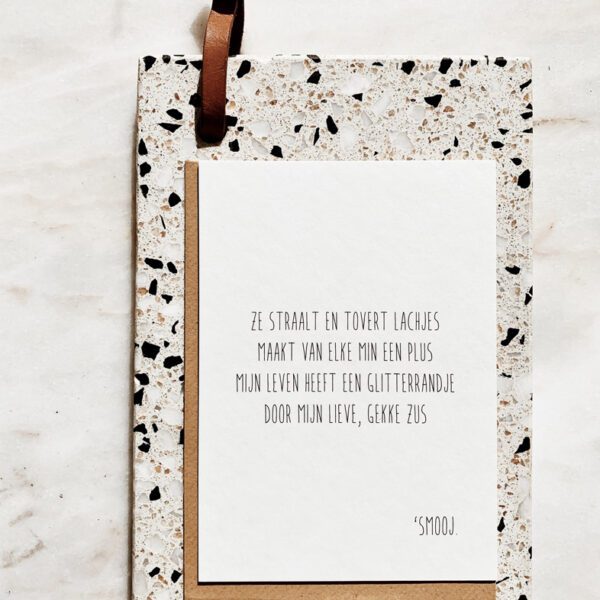 ZE STRAALT EN TOVERT LACHJES
MAAKT VAN ELKE MIN EEN PLUS
MIJN LEVEN HEEFT EEN GLITTERRANDJE
DOOR MIJN LIEVE, GEKKE ZUS
'SMOOJ.